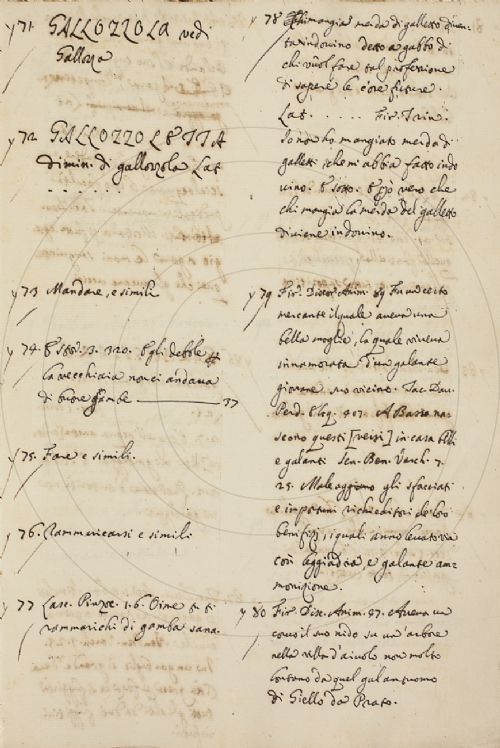 y 71 GALLOZZOLA vedi
Gallozza
y 72 GALLOZZOLETTA
dimin. di gallozzola Lat
. . . . . . .
y 73 Mandare, e simili
y 74. 320. Egli debole
la vecchiaia non ci andava
di buone gambe 37
y 75. Fare e simili.
y 76. Rammaricarsi e simili
y 77 Lasc. Pinzoc. 1.6. Oime tu ti
rammarichi di gamba sana.
y 78 Chi mangia merda di galletto diven-
ta indovino detto a gabbo di
chi vuol fare tal professione
di sapere le cose future.
Lat. . . . . . Fir. Trin.
Io non ho mangiato merda di
galletti, che mi abbia fatto indo
vino. E sotto. E vero che
chi mangia la merda del galletto
diviene indovino.
y 79 Fir. Disc. Anim. 89 Fu un certo
mercante il quale aveva una
bella moglie, la quale viveva
innamorata d'un galante
giovane suo vicino. Tac. Dav.
Perd. Eloq. 407. A Basso na-
scono questi [versi] in casa
e galanti Sen. Ben. Varch. 7.
25. Male aggiano gli sfacciati
e importuni richieditori de' loro
benifizj, i quali anno levato via
così leggiadra, e galante am-
monizione.
y 80 Fir. Disc. Anim. 27. Aveva un
corvo il suo nido su un arbore
nella villa d'aiuolo non molto
lontano da quel galantuomo
di Giello da Prato.